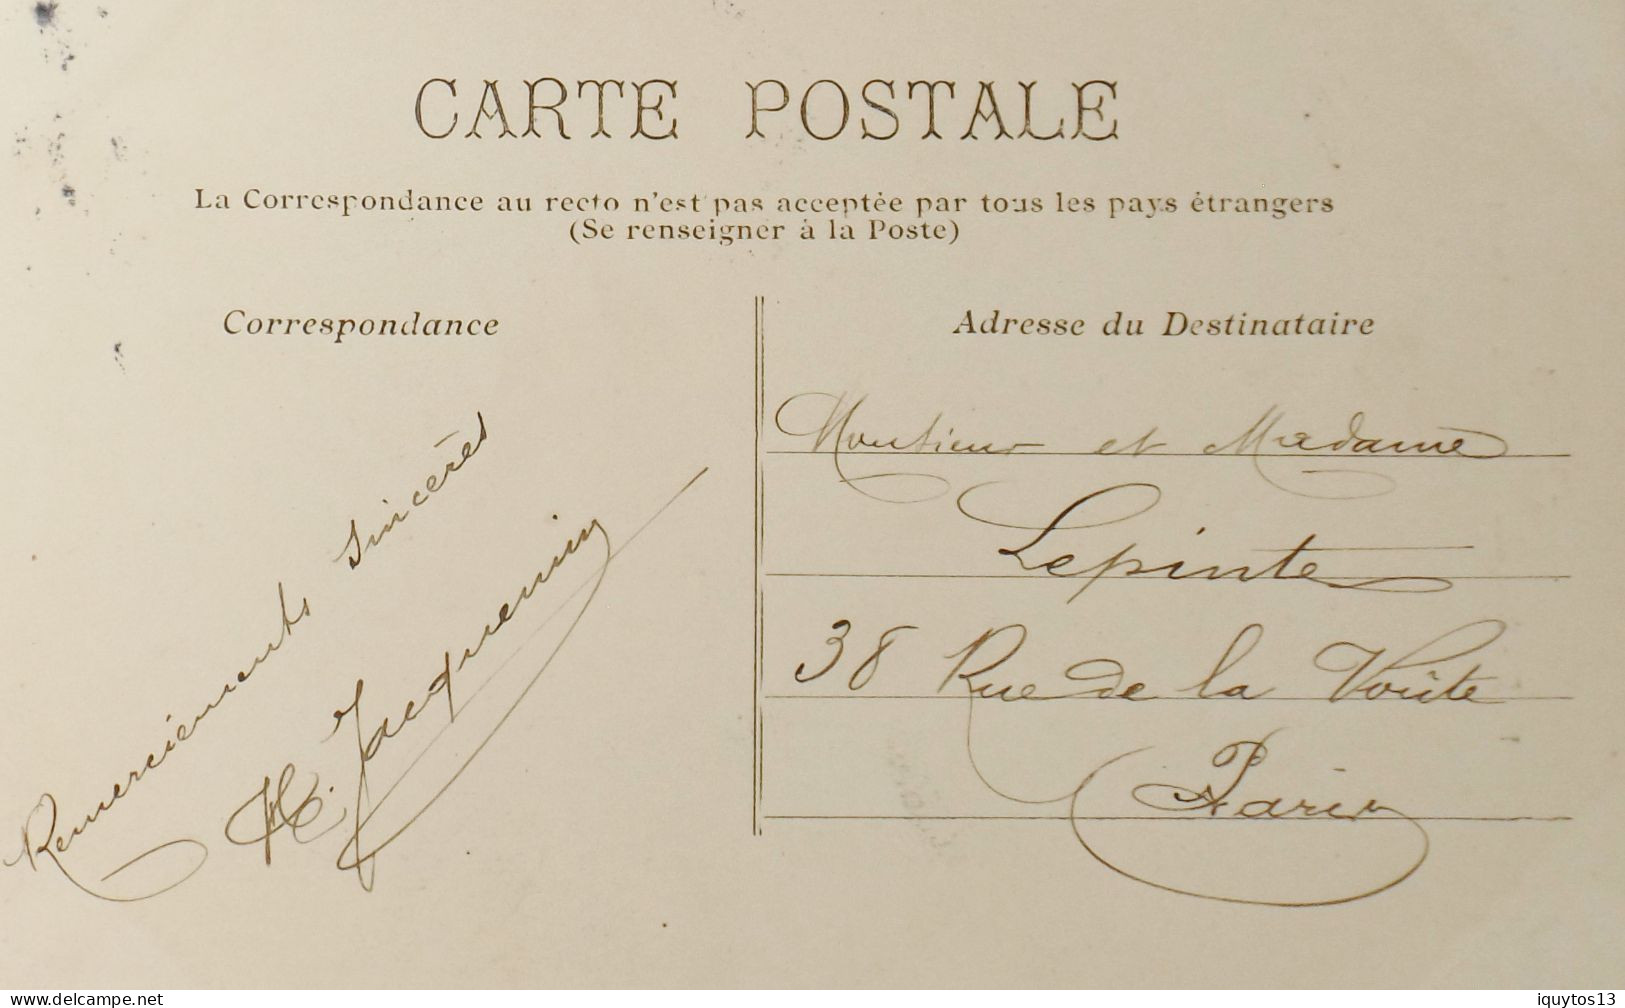 CARTE POSTALE
La Correspondance au recto n'est pas acceptée par tous les pays étrangers
(Se renseigner à la Poste)
Correspondance
Remerciements sincères
H. Jacquemin
Adresse du Destinataire
Monsieur et Madame
Lepinte
38 Rue de la Voûte
Paris
www.delcampe.net
iquytos13